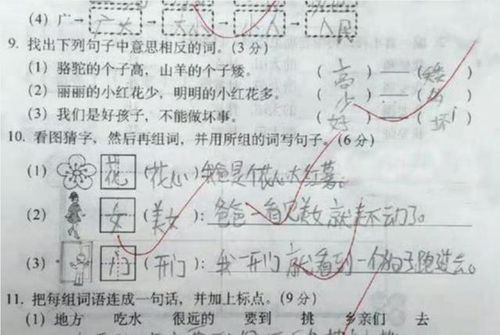 (4) 广→广大→大小→小人→人民
9. 找出下列句子中意思相反的词。(3分)
(1) 骆驼的个子高，山羊的个子矮。 (高)——(矮)
(2) 丽丽的小红花少，明明的小红花多。 (少)——(多)
(3) 我们是好孩子，不能做坏事。 (好)——(坏)
10. 看图猜字，然后再组词，并用所组的词写句子。(6分)
(1) 花 (花心): 爸爸是个花心大萝卜。
(2) 女 (美女): 爸爸一看见美女就走不动了。
(3) 门 (开门): 我一开门就看到一个狗子跑过去。
11. 把每组词语连成一句话，并加上标点。(9分)
(1) 地方 吃水 很远的 要到 挑 乡亲们 去